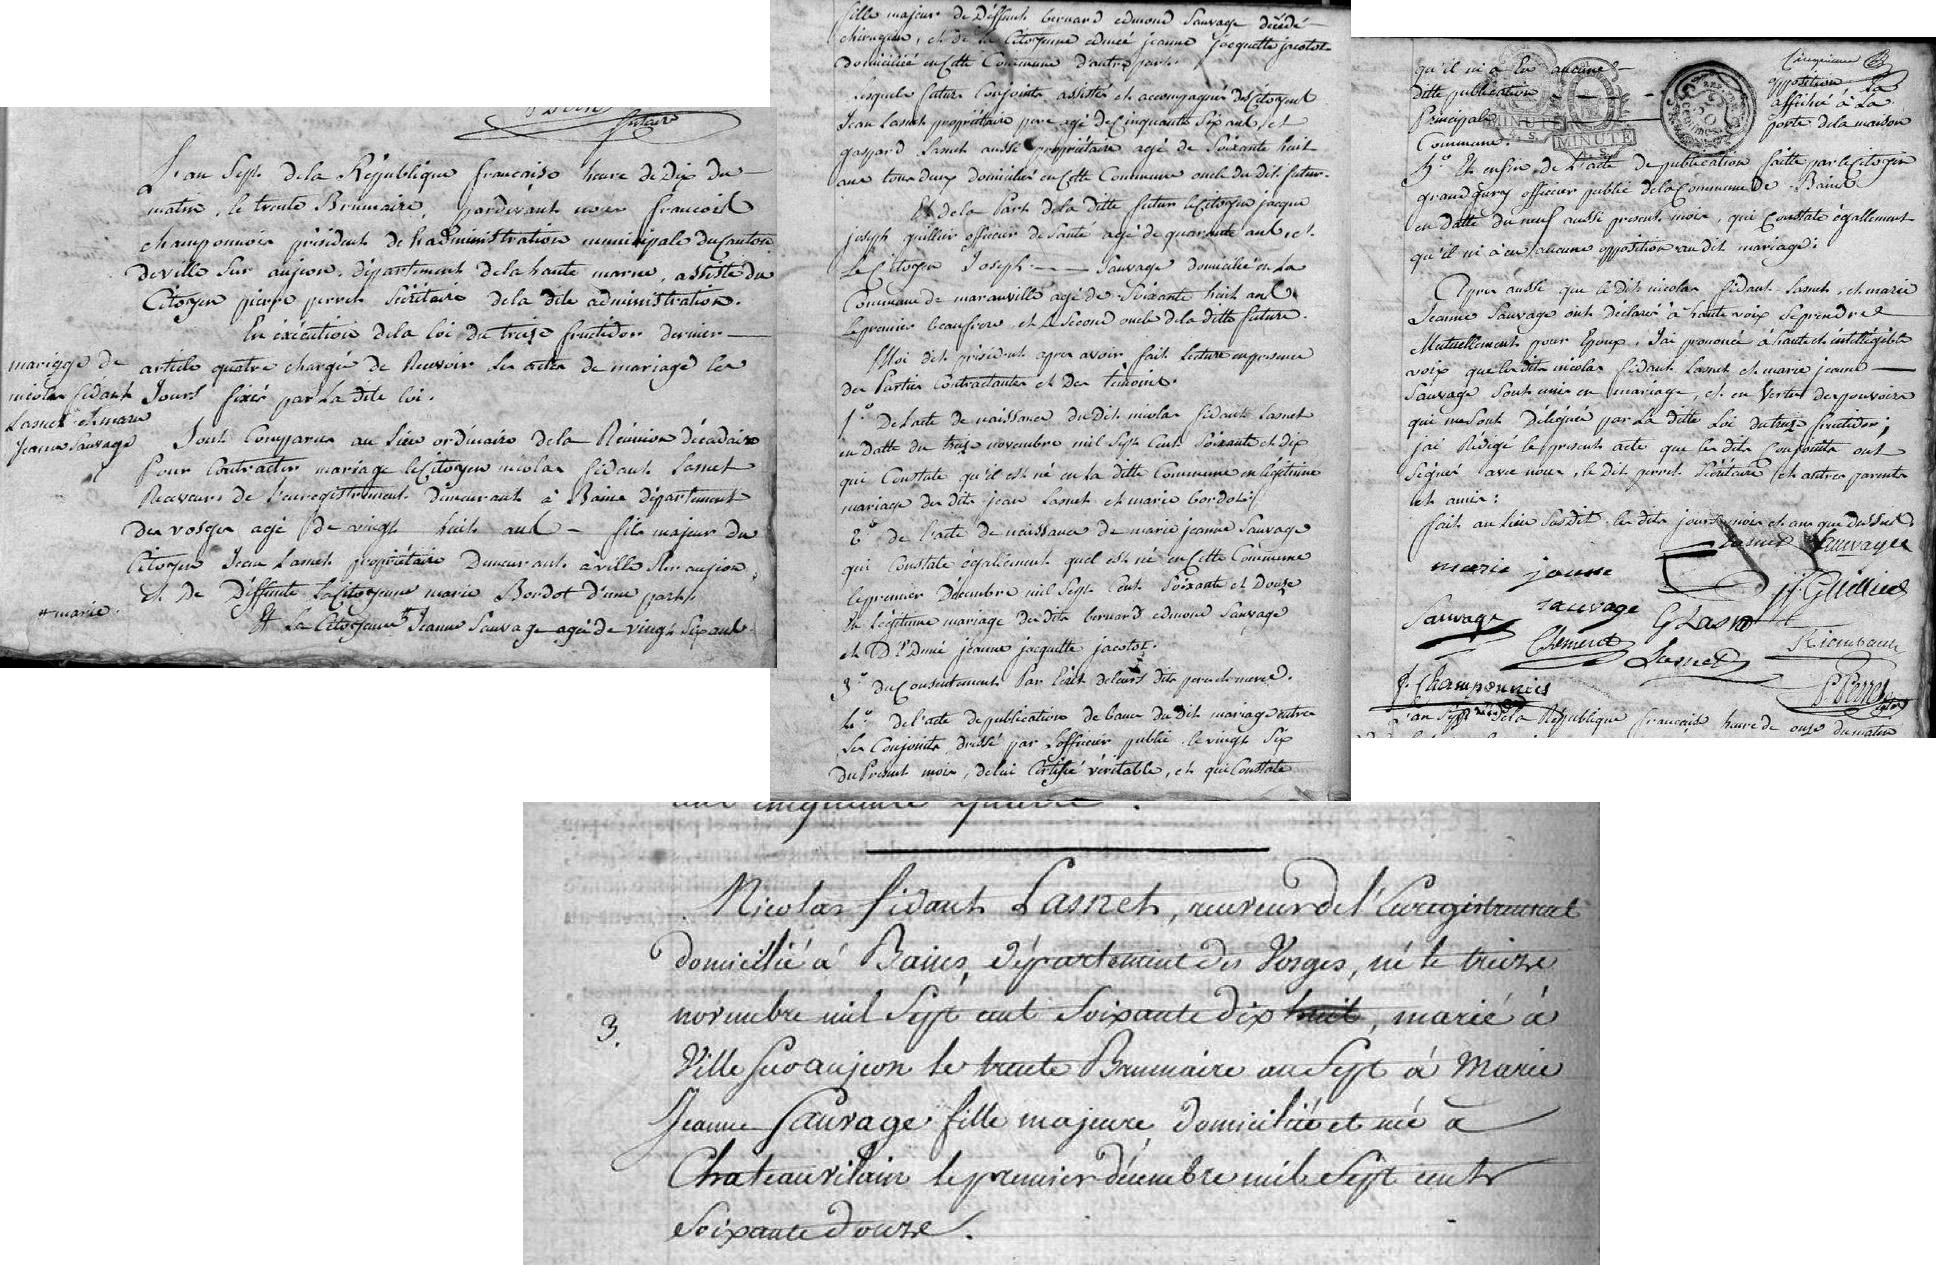 L'an Sept de la République française heure de Dix du
matin, le trente Brumaire, pardevant nous francois
champonnois président de Ladministration municipale du Canton
de ville Sur aujeon, département de la haute marne, assisté du
Citoyen pierre perret Sécrétaire de la dite administration.
En éxécution de la loi du treise fructidor dernier
article quatre chargée de Recevoir Les actes de mariage les
Jours fixés par La dite loi.
mariage de
nicolas fidant
Lasnet et marie
Jeanne Sauvage
Sont Comparus au Lieu ordinaire de la Réunion décadaire
pour Contracter mariage le Citoyen nicolas fidant Lasnet
Receveur de l'enregistrement demeurant à Baine département
des vosges agé de vingt huit ans fils majeur du
Citoyen Jean Lasnet propriétaire Demeurant à ville Sur aujeon,
et de Déffunte La Citoyenne marie Bordot d'une part,
# marie.
Et La Citoyenne # Jeanne Sauvage agée de vingt Six ans
fille majeur de Déffunt bernard edmond Sauvage décédé
chirurgien, et de la Citoyenne edmeé jeanne jacquette jacotot
domiciliée en Cette Commune d'autre part.
Lesquels futurs Conjoints assistés et accompagnés des Citoyens
Jean Lasnet propriétaire pere agé de Cinquante Six ans, et
gaspard Lasnet aussi propriétaire agé de Soixante huit
ans tous deux domiciliés en Cette Commune oncle du dit futur.
Et de la Part de la ditte futur le Citoyen jacque
joseph guillier officier de Santé agé de quarante ans, et
Le Citoyen Joseph Sauvage domicilié en La
Commune de maranville agé de Soixante huit ans
Le premier beaufrere, et Le Second oncle de la ditte future.
Moi dit président apres avoir fait Lecture en presence
des Parties Contractantes et des témoins.
1° De Lacte de naissance du Dit nicolas fidant Lasnet
en datte du treize novembre mil Sept Cent Soixante et dix
qui Constate qu'il est né en La ditte Commune en légitime
mariage des dits jean Lasnet et marie bordot;
2° de l'acte de naissance de marie jeanne Sauvage
qui Constate égallement quel est né en Cette Commune
Le premier Décembre mil Sept Cent Soixante et Douze
En légitime mariage des dits bernard edmond Sauvage
et Edmeé jeanne jacquette jacotot.
3° du Consentement Par Ecrit de leurs dits pere et mere.
4° de l'acte de publication de bans du dit mariage entre
Les Conjoints dressé par Loffficier public le vingt Six
du Present mois, de lui Certifié véritable, et qui Constate
qu'il ni a Eu aucune
ditte publication
Principale
Commune.
opposition La
affiché à La
porte de la maison
MINUTE
MINUTE
5° Et enfin de l'acte de publication faitte par le Citoyen
grandgury officier public de la Commune de Bains
en datte du neuf aussi present mois, qui Constate égallement
qu'il ni à eu aucune opposition au dit mariage;
Apres aussi que le Dit nicolas fidant Lasnet, et marie
Jeanne Sauvage ont déclaré à haute voix Se prendre
Mutuellement pour Epoux, J'ai prononcé à haute et intelligible
voix que les dits nicolas fidant Lasnet et marie jeanne
Sauvage Sont unis en mariage, et en Vertu des pouvoirs
qui me Sont Délegués par La ditte Loi du treize fructidor;
j'ai Rédigé le present acte que les dits Conjoints ont
Signés avec nous, le dit perret Sécrétaire et autres parents
et amis:
fait au lieu Susdit les dits jour mois et an que dessus.
Lasnet Sauvage
marie jeanne
JJ Guillier
Sauvage Sauvage G Lasnet
Clement Lasnet
f. Champonnois
P. Perret
L'an Sept de la République française heure de onze du matin
Nicolas fidant Lasnet, receveur de l'Enregistrement
domicilié à Bains, Département des Vosges, né le treize
novembre mil Sept cent Soixante dix huit, marié à
3.
Ville Sur aujeon le trente Brumaire an Sept à Marie
Jeanne Sauvage fille majeure domiciliée et née à
Chateauvilain le premier décembre mil Sept cent
Soixante douze.